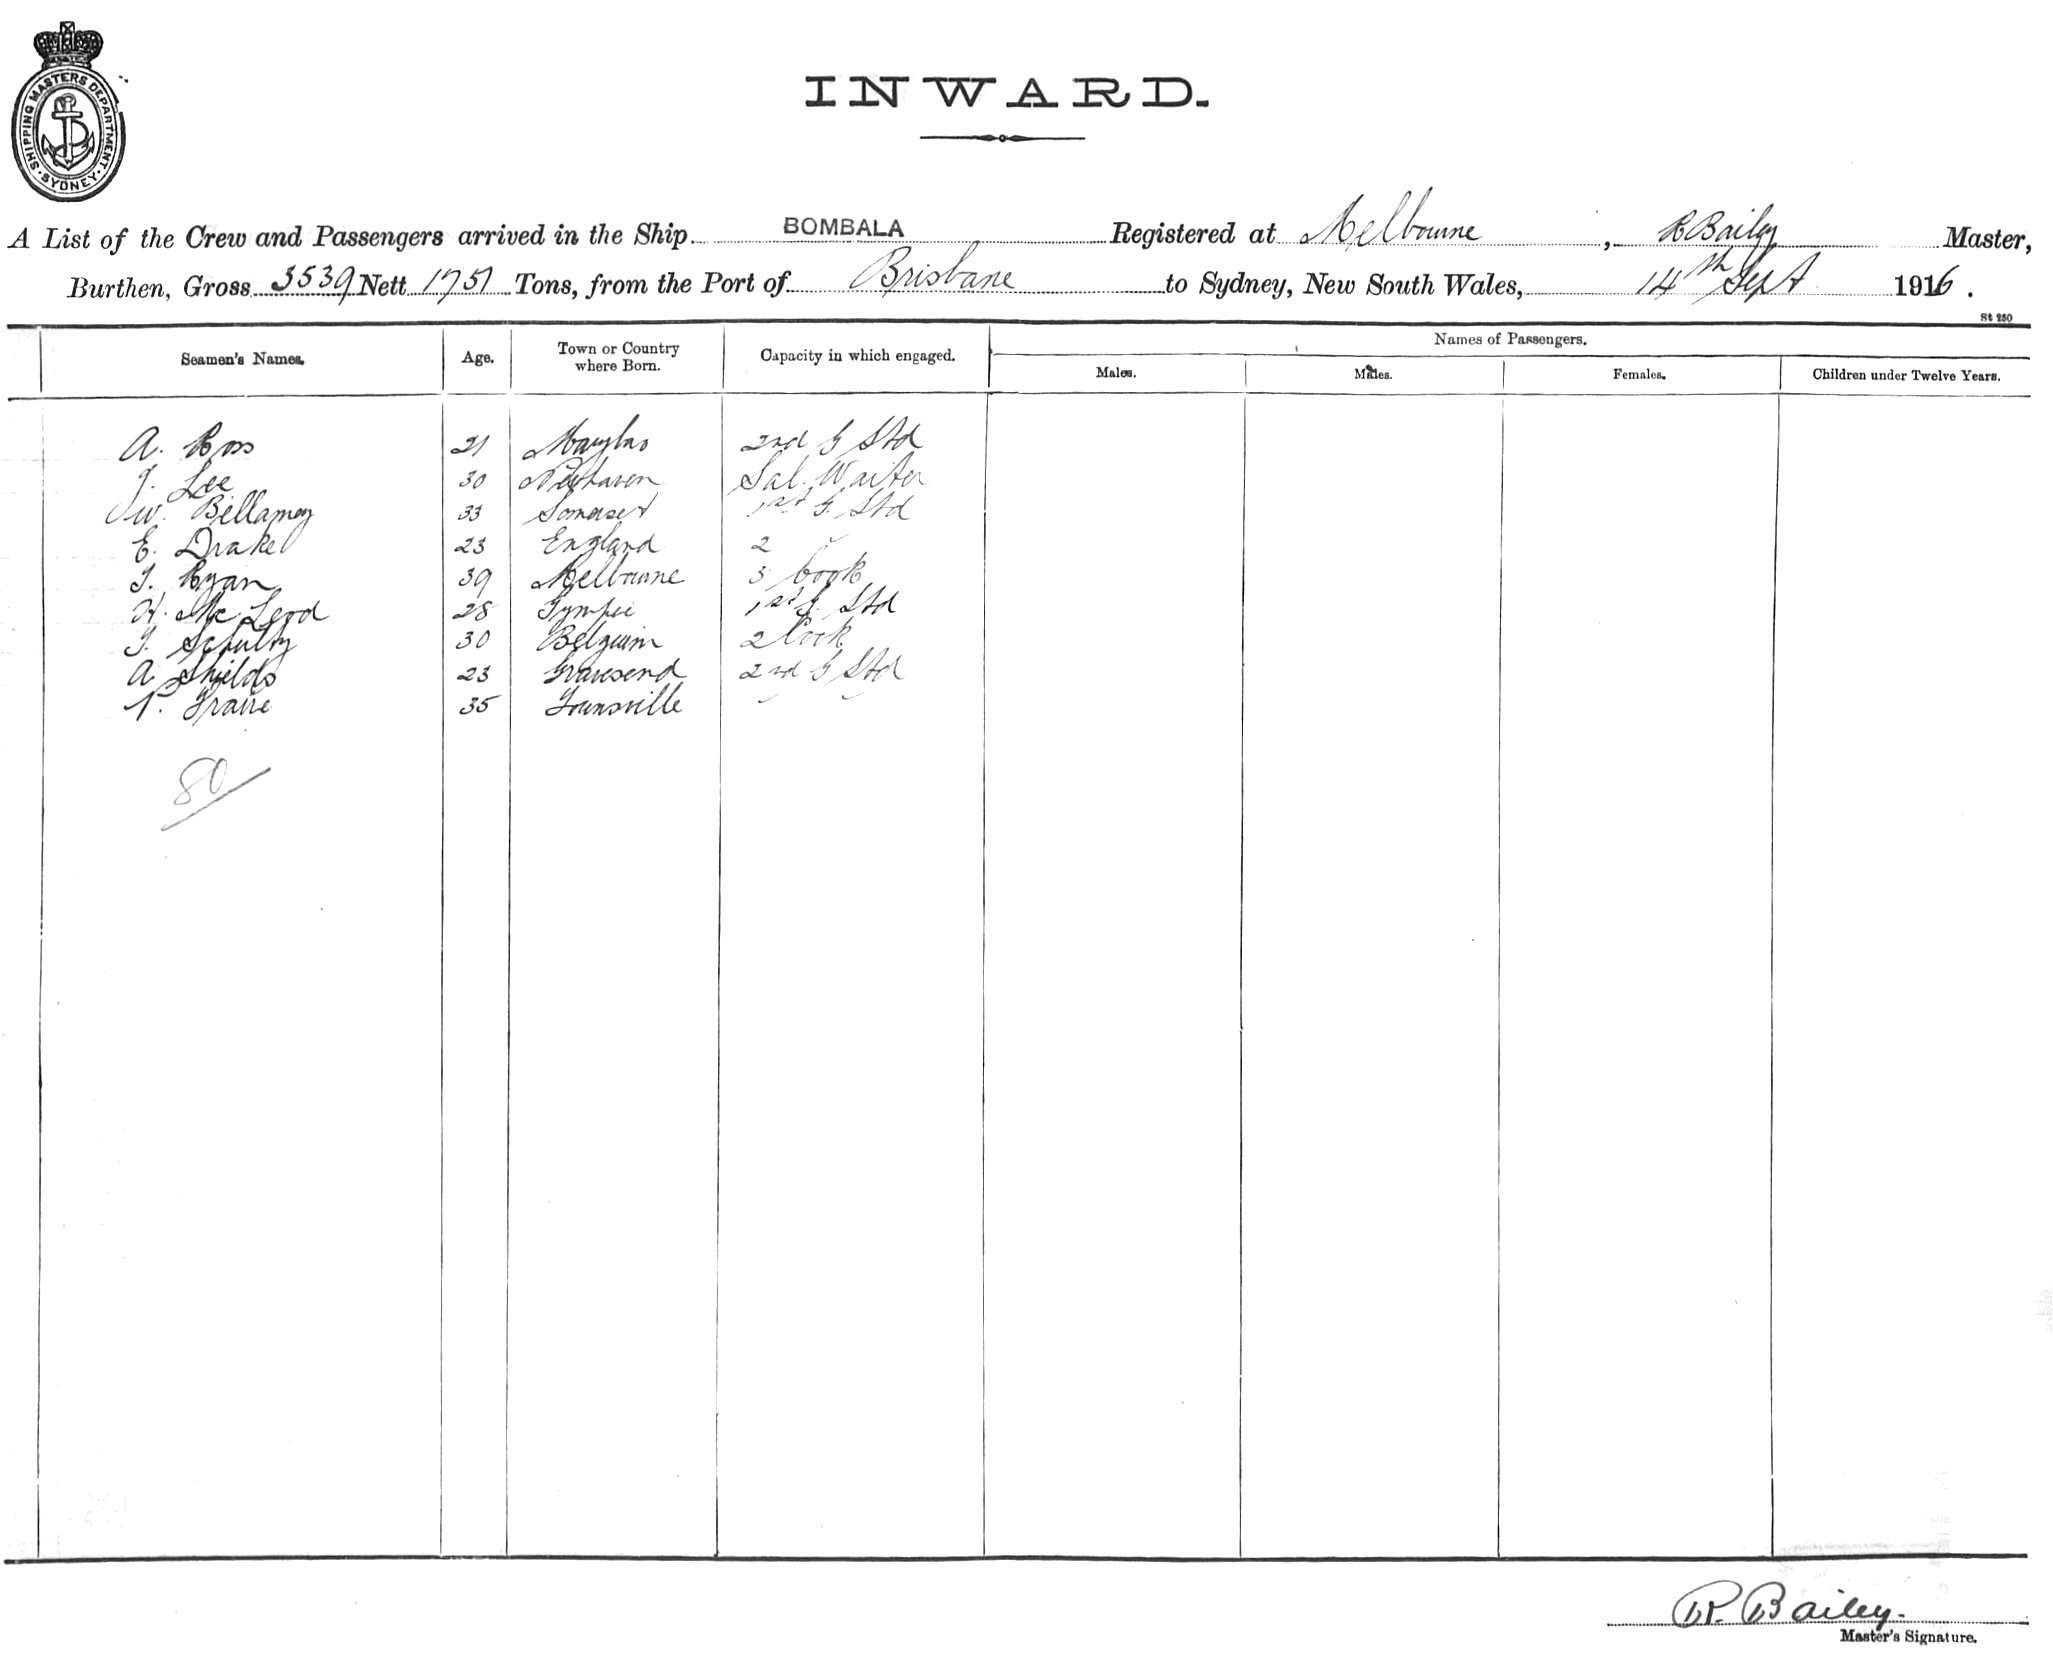 SHIPPING MASTERS DEPARTMENT
SYDNEY
INWARD.
A List of the Crew and Passengers arrived in the Ship BOMBALA Registered at Melbourne, R Bailey Master,
Burthen, Gross 3539 Nett 1751 Tons, from the Port of Brisbane to Sydney, New South Wales, 14th Sept 1916.
St 250
Names of Passengers.
Seamen's Names. Age. Town or Country where Born. Capacity in which engaged. Males. Males. Females. Children under Twelve Years.
A. Ross 21 2nd G Std
J. Lee 30 Sal. Waiter
W. Bellamey 33 Somerset 1st G. Std
E. Drake 23 England 2
T. Ryan 39 Melbourne 3 Cook
H. McLeod 28 Gympie 1st G. Std
J. Schultz 30 Belguim 2 Cook
A Shields 23 Gravesend 2nd G Std
P. 35 Townsville
80
R. Bailey.
Master's Signature.